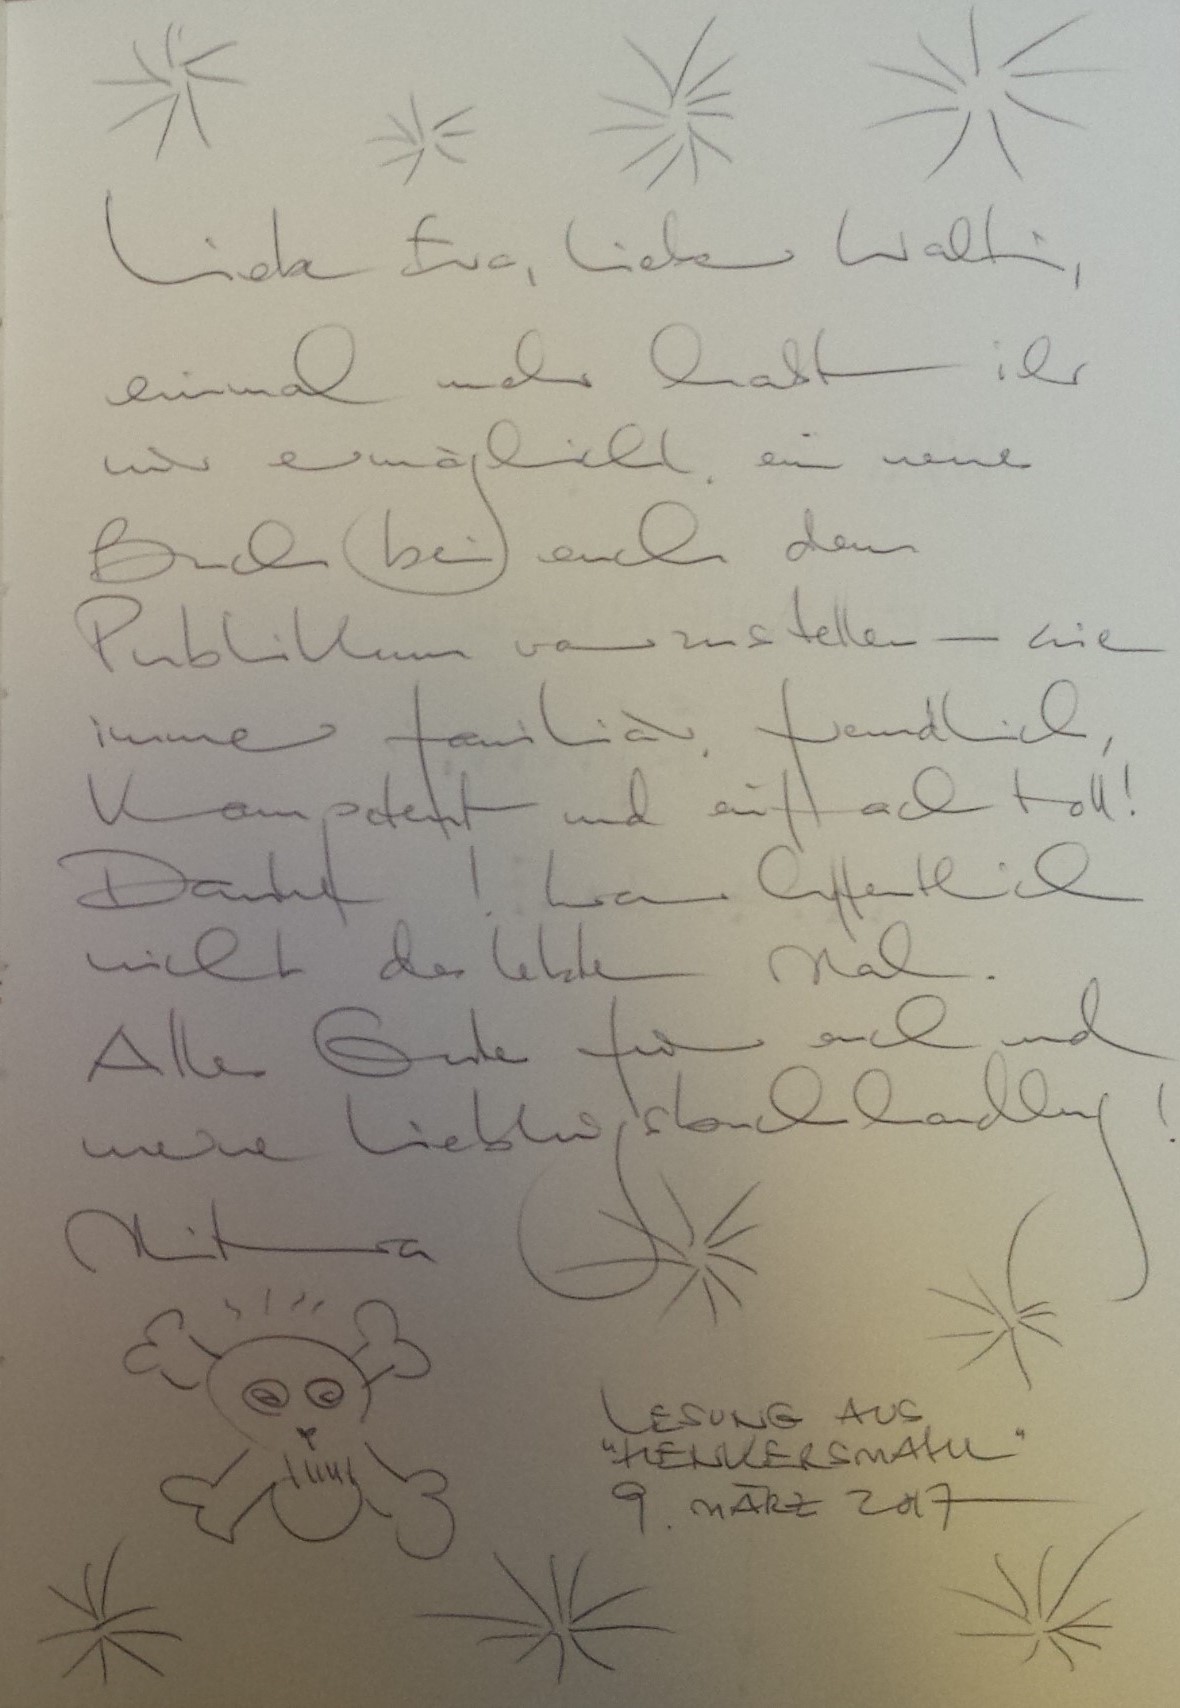 Liebe Eva, lieber Walti,
einmal mehr habt ihr
mir ermöglicht, ein neues
Buch (bei) euch dem
Publikum vorzustellen – wie
immer familiär, freundlich,
kompetent und einfach toll!
Danke! War hoffentlich
nicht das letzte Mal.
Alles Gute für euch und
meine Lieblingsbuchhandlung!
Mitra
LESUNG AUS
"HENKERSMAHL"
9. MÄRZ 2017